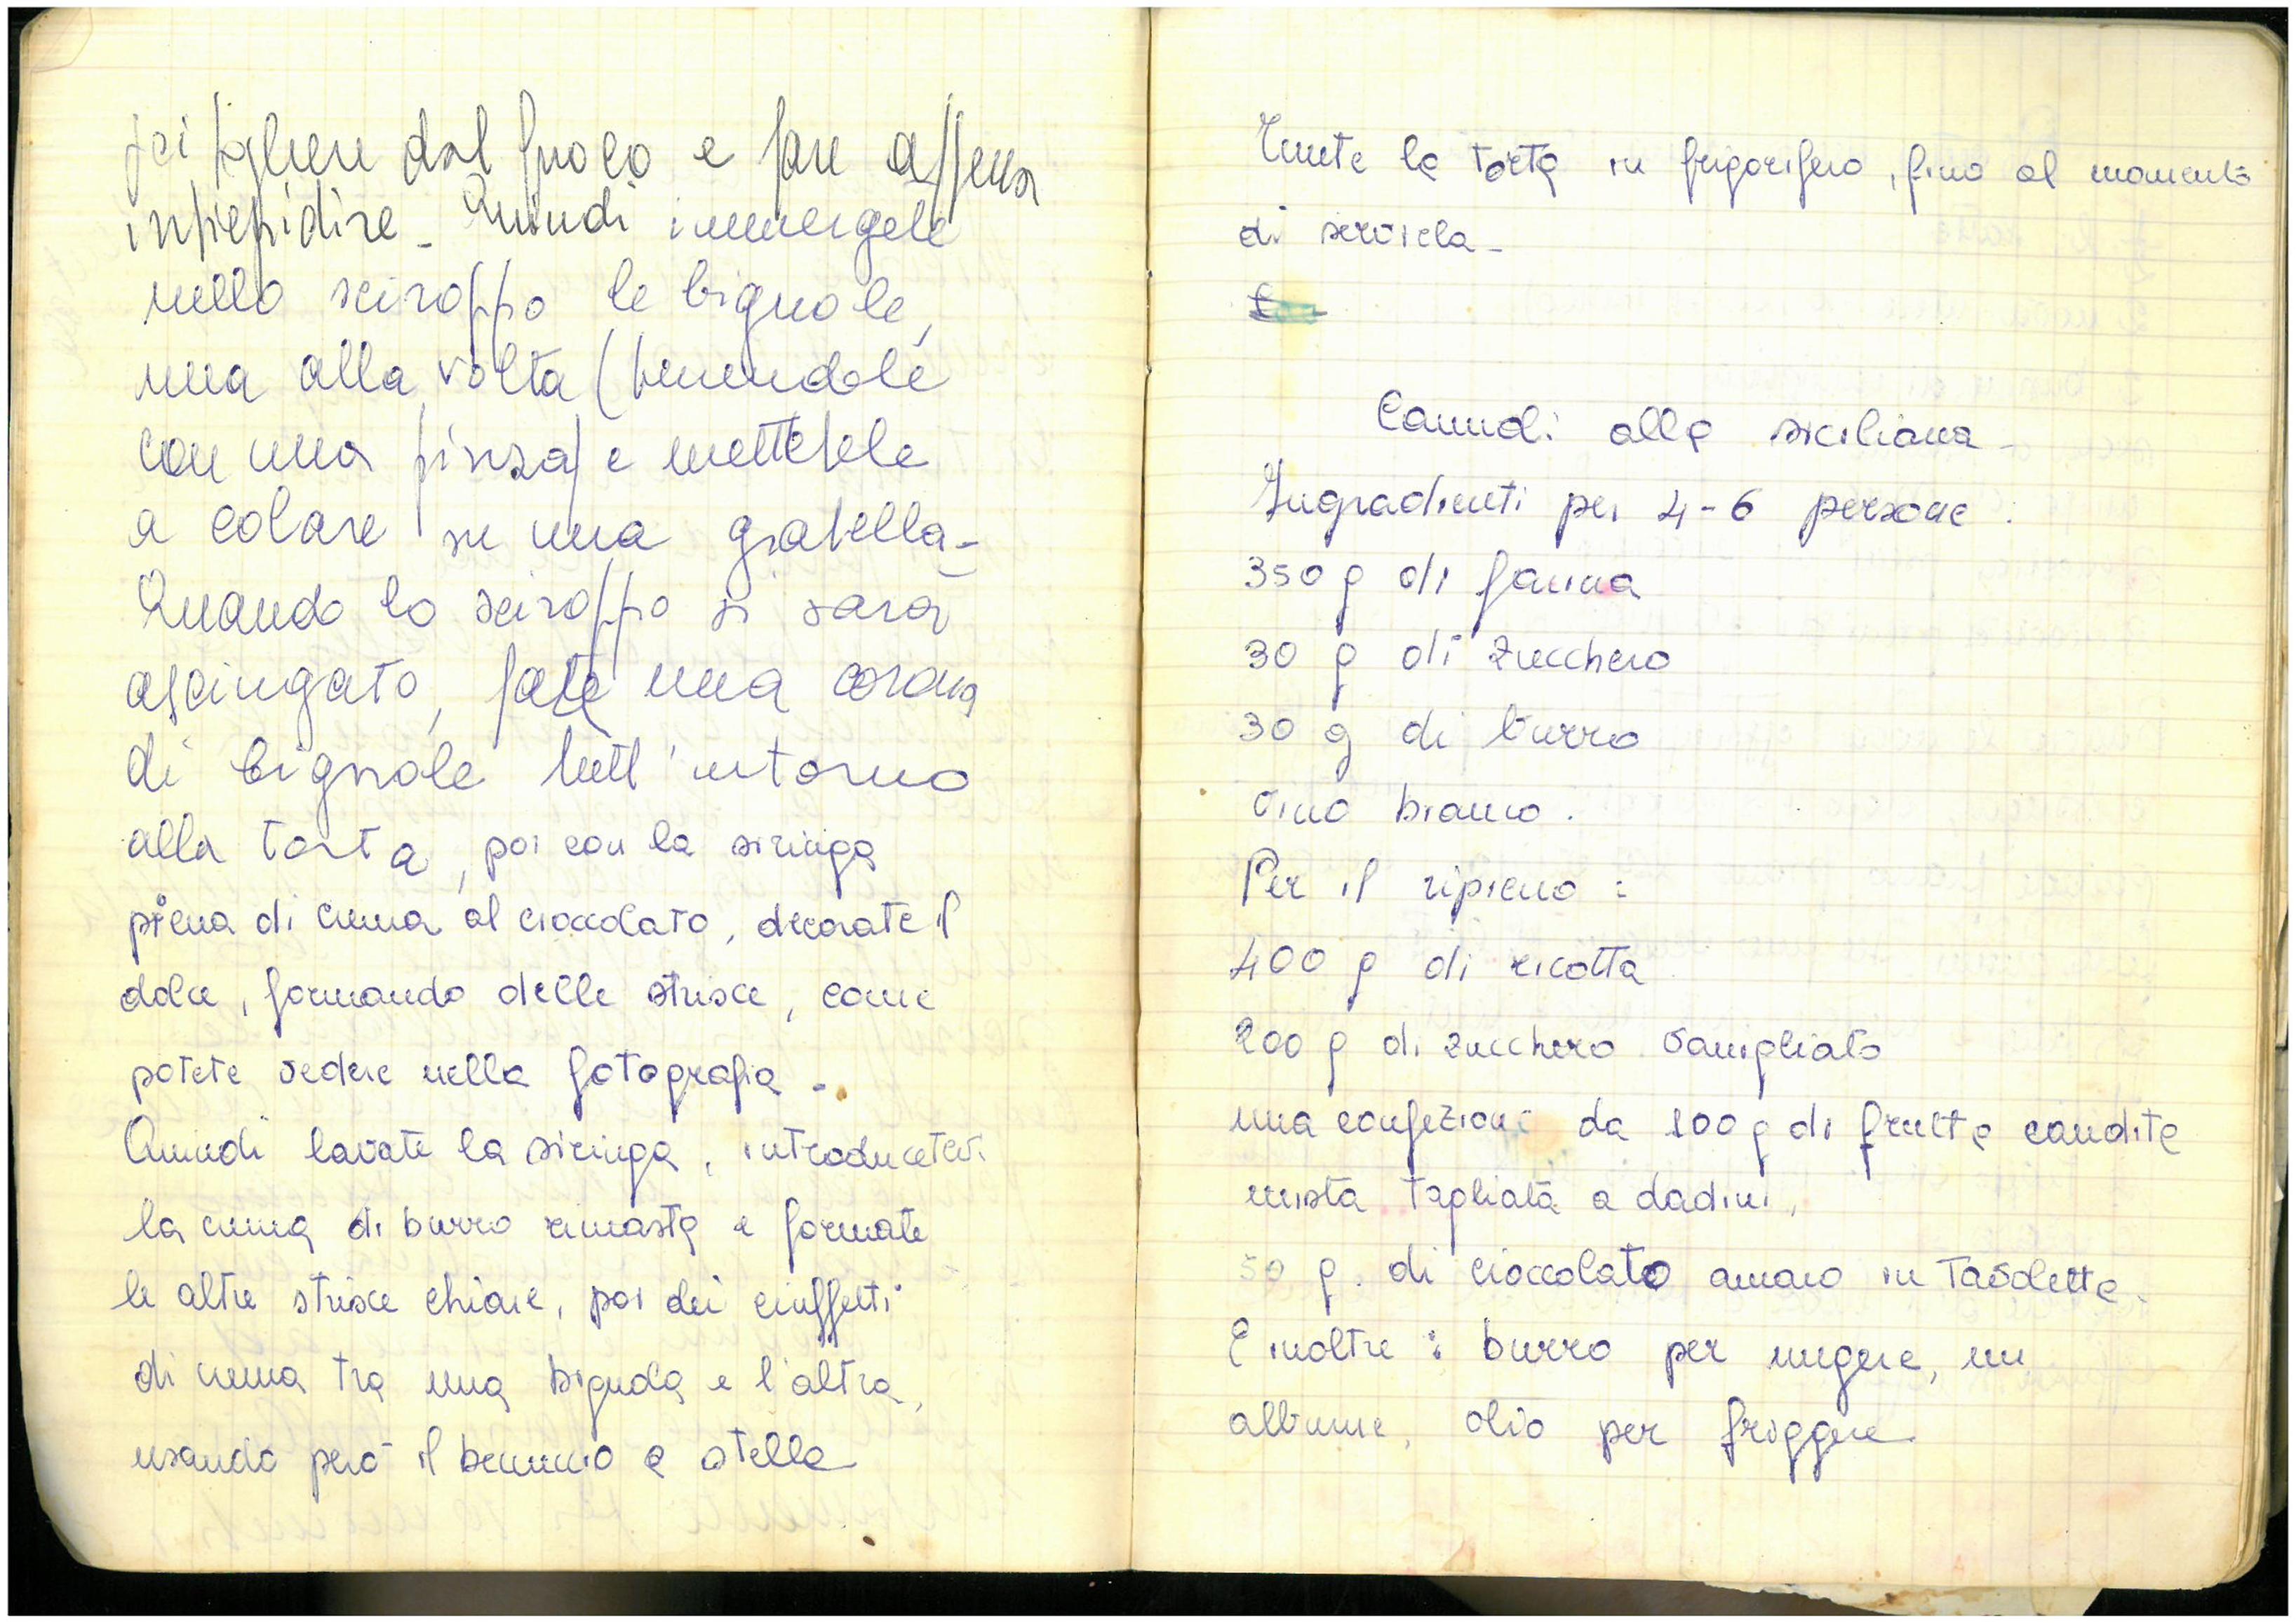 poi togliere dal fuoco e fare appena
intiepidire - Quindi immergete
nello sciroppo le bignole,
una alla volta (tenendole
con una pinza) e mettetele
a colare su una gratella -
Quando lo sciroppo si sarà
asciugato, fate una corona
di bignole tutt'intorno
alla torta, poi con la siringa
piena di crema al cioccolato, decorate il
dolce, formando delle strisce, come
potete vedere nella fotografia -
Quindi lavate la siringa, introducetevi
la crema di burro rimasta e formate
le altre strisce chiare, poi dei ciuffetti
di crema tra una bignola e l'altra,
usando però il beccuccio a stella
Tenete la torta in frigorifero, fino al momento
di servirla -
Cannoli alla siciliana -
Ingradienti per 4-6 persone :
350 g di farina
30 g di zucchero
30 g di burro
vino bianco .
Per il ripieno :
400 g di ricotta
200 g di zucchero vanigliato
una confezione da 100 g di frutta candita
mista tagliata a dadini,
50 g. di cioccolato amaro in tavolette.
E inoltre : burro per ungere, un
albume, olio per friggere